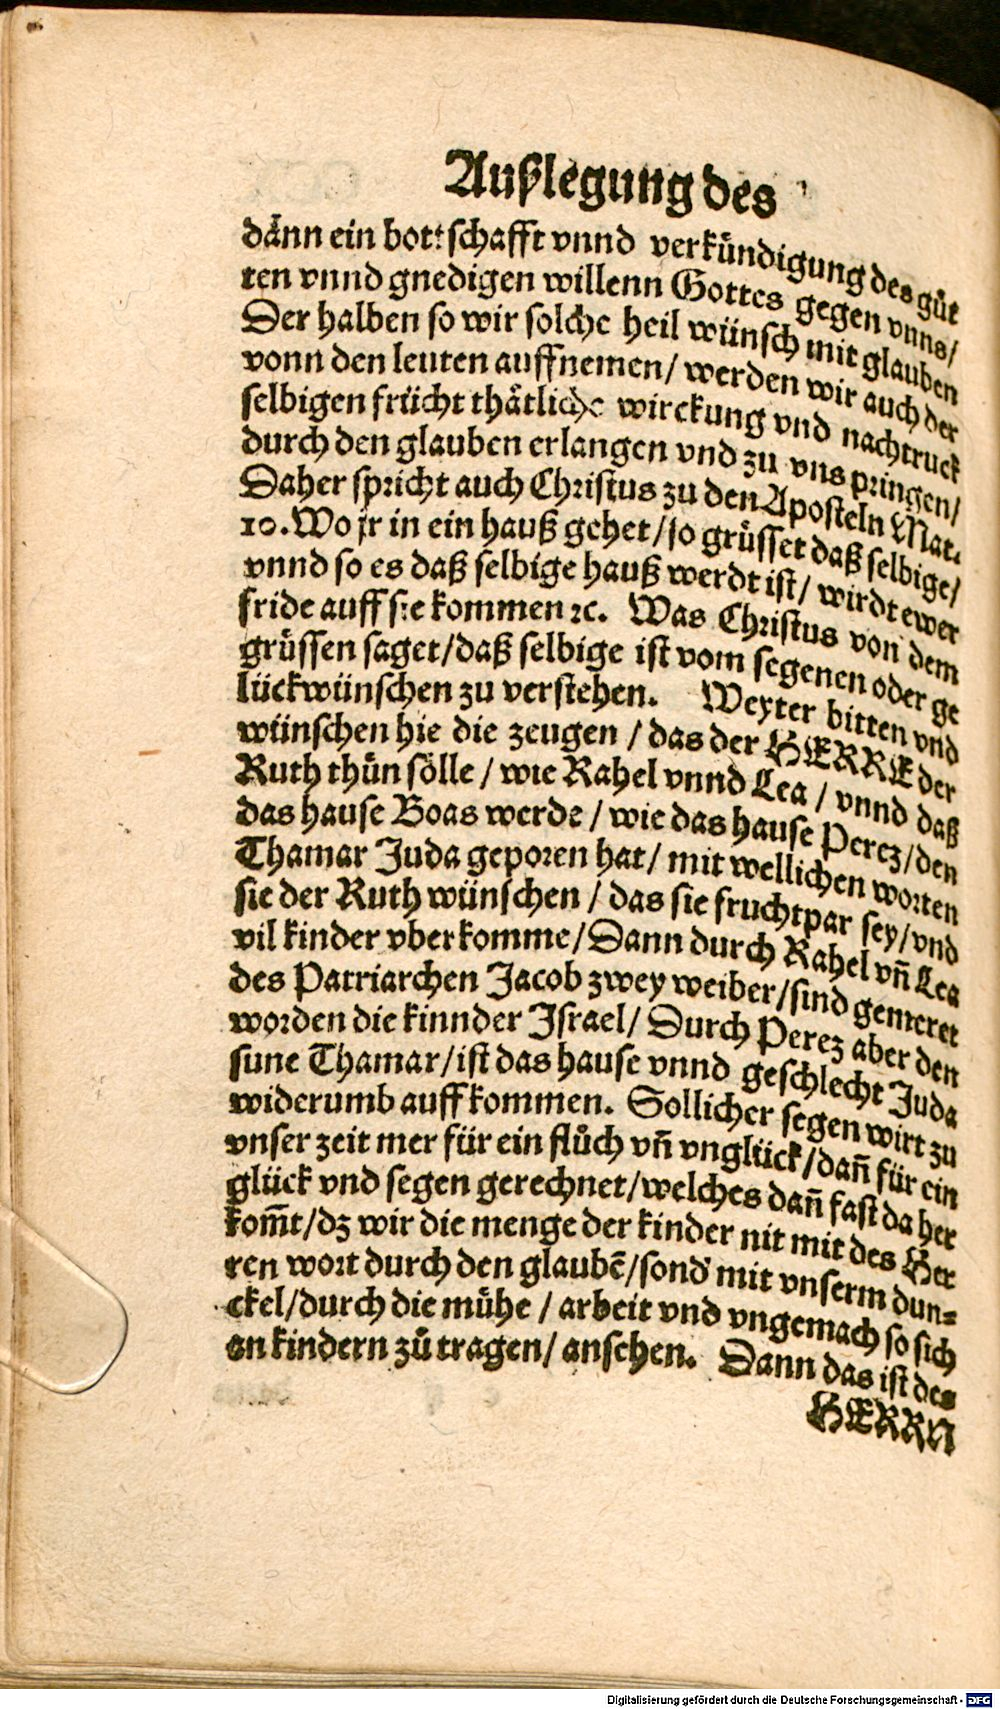 Außlegung des
dann ein bottschafft vnnd verkündigung des gůt
ten vnnd gnedigen willenn Gottes gegen vnns/
Der halben so wir solche heil wünsch mit glauben
vonn den leuten auffnemen/ werden wir auch der
selbigen frücht thätliche wirckung vnd nachtruck
durch den glauben erlangen vnd zu vns pringen/
Daher spricht auch Christus zu den Aposteln Mat.
10. Wo jr in ein hauß gehet/so grüsset daß selbige/
vnnd so es daß selbige hauß werdt ist/ wirdt ewer
fride auff sie kommen ꝛc. Was Christus von dem
grüssen saget/daß selbige ist vom segenen oder ge
lückwünschen zu verstehen. Weyter bitten vnd
wünschen hie die zeugen / das der HERRE der
Ruth thün sölle / wie Rahel vnnd Lea / vnnd daß
das hause Boas werde / wie das hause Perez/den
Thamar Juda geporen hat/ mit wellichen worten
sie der Ruth wünschen / das sie fruchtpar sey/vnd
vil kinder vberkomme/Dann durch Rahel vñ Lea
des Patriarchen Jacob zwey weiber/sind gemeret
worden die kinnder Israel/ Durch Perez aber den
sune Thamar/ist das hause vnnd geschlecht Juda
widerumb auffkommen. Sollicher segen wirt zu
vnser zeit mer für ein flůch vñ vnglück/dañ für ein
glück vnd segen gerechnet/welches dañ fast da her
kom̃t/dz wir die menge der kinder nit mit des Her
ren wort durch den glaubẽ/sond' mit vnserm dun⸗
ckel/durch die mühe / arbeit vnd vngemach so sich
an kindern zů tragen/ ansehen. Dann das ist des
HERRN
Digitalisierung gefördert durch die Deutsche Forschungsgemeinschaft - DFG